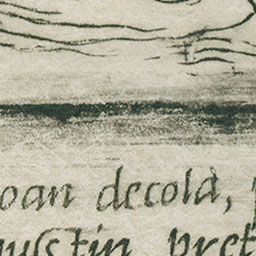 oan decola,
gustin pret